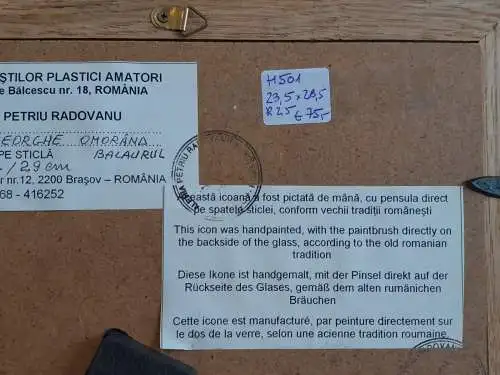 ȘTILOR PLASTICI AMATORI
e Bălcescu nr. 18, ROMÂNIA
PETRIU RADOVANU
EORGHE OMORÂND
PE STICLĂ BALAURUL
/29 cm
r nr.12, 2200 Brașov – ROMÂNIA
68 - 416252
H501
23,5 x 28,5
R25
€ 75,-
PETRIU RA
ească icoană a fost pictată de mână, cu pensula direct
pe spatele sticlei, conform vechii tradiții românești
This icon was handpainted, with the paintbrush directly on
the backside of the glass, according to the old romanian
tradition
Diese Ikone ist handgemalt, mit der Pinsel direkt auf der
Rückseite des Glases, gemäß dem alten rumänichen
Bräuchen
Cette icone est manufacturé, par peinture directement sur
le dos de la verre, selon une acienne tradition roumaine